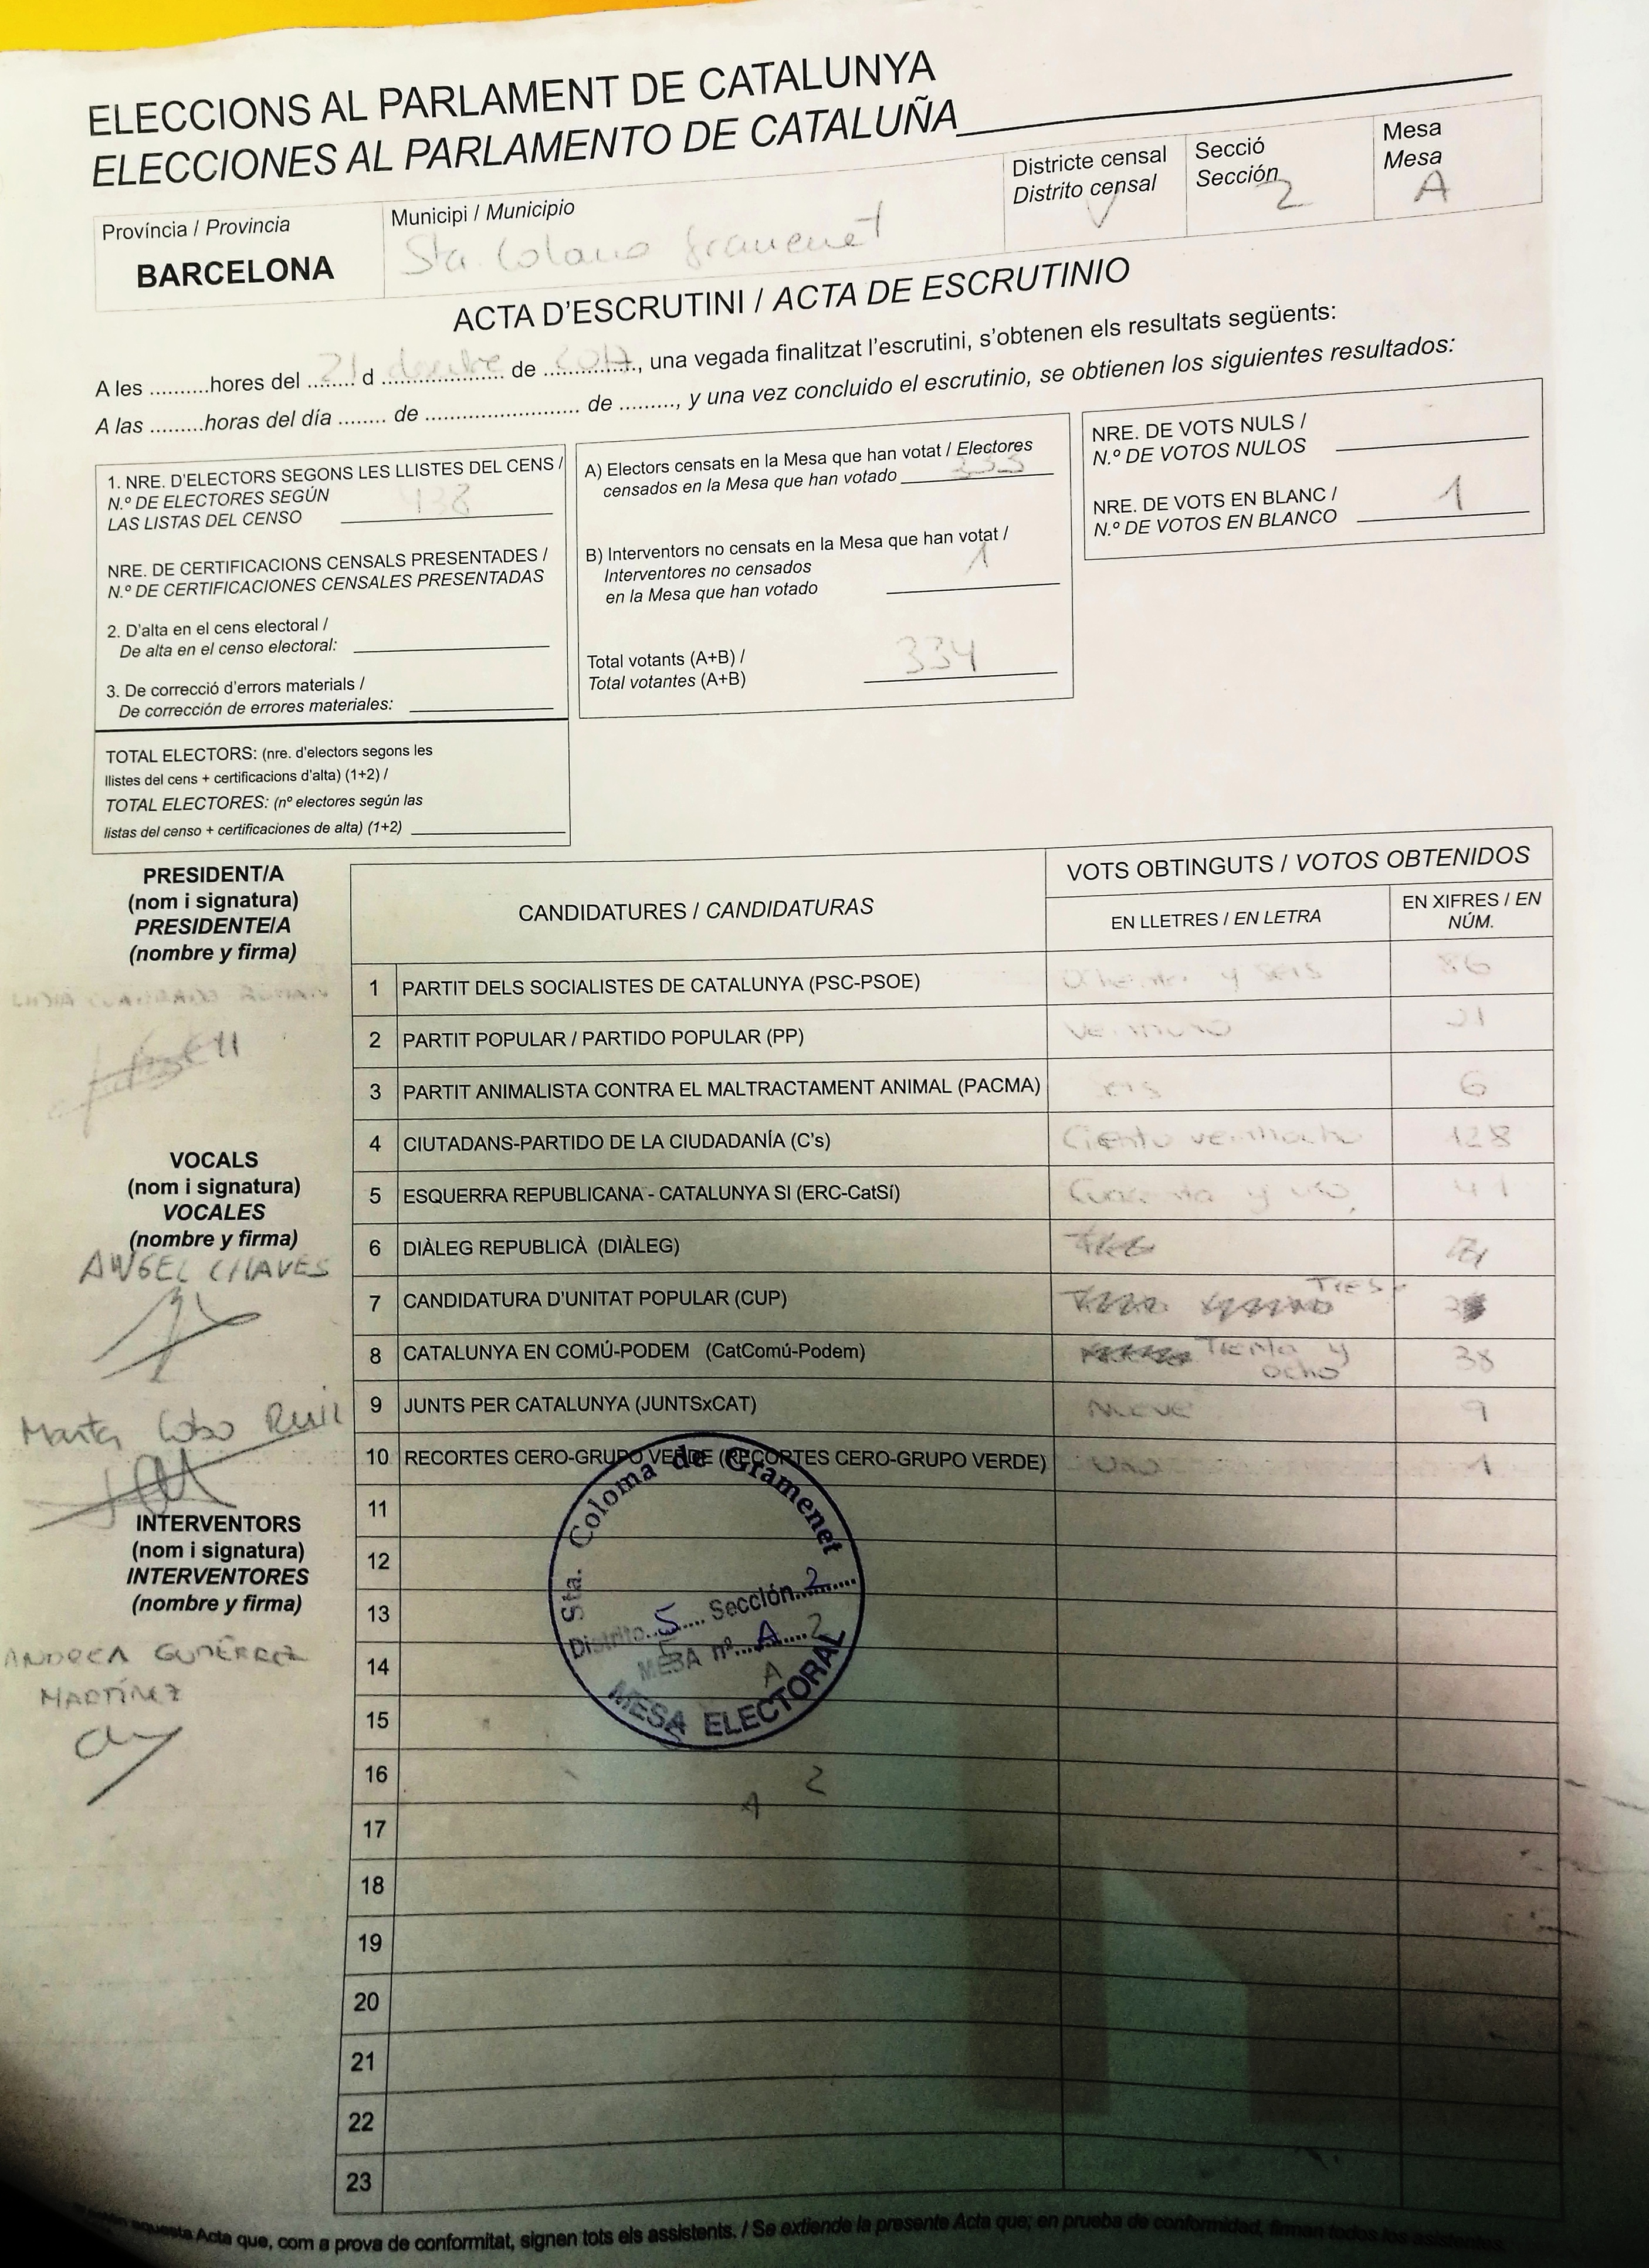 ELECCIONS AL PARLAMENT DE CATALUNYA
ELECCIONES AL PARLAMENTO DE CATALUÑA
Província / Provincia
BARCELONA
Municipi / Municipio
Sta. Coloma Gramenet
Districte censal
Distrito censal
V
Secció
Sección
2
Mesa
Mesa
A
ACTA D'ESCRUTINI / ACTA DE ESCRUTINIO
A les ..........hores del 21 d desembre de 2017, una vegada finalitzat l'escrutini, s'obtenen els resultats següents:
A las .........horas del día ........ de .......................... de ........., y una vez concluido el escrutinio, se obtienen los siguientes resultados:
1. NRE. D'ELECTORS SEGONS LES LLISTES DEL CENS /
N.º DE ELECTORES SEGÚN
LAS LISTAS DEL CENSO 438
NRE. DE CERTIFICACIONS CENSALS PRESENTADES /
N.º DE CERTIFICACIONES CENSALES PRESENTADAS
2. D'alta en el cens electoral /
De alta en el censo electoral:
3. De correcció d'errors materials /
De corrección de errores materiales:
TOTAL ELECTORS: (nre. d'electors segons les
llistes del cens + certificacions d'alta) (1+2) /
TOTAL ELECTORES: (nº electores según las
listas del censo + certificaciones de alta) (1+2)
A) Electors censats en la Mesa que han votat / Electores
censados en la Mesa que han votado 333
B) Interventors no censats en la Mesa que han votat /
Interventores no censados
en la Mesa que han votado 1
Total votants (A+B) /
Total votantes (A+B) 334
NRE. DE VOTS NULS /
N.º DE VOTOS NULOS
NRE. DE VOTS EN BLANC /
N.º DE VOTOS EN BLANCO 1
PRESIDENT/A
(nom i signatura)
PRESIDENTE/A
(nombre y firma)
VOCALS
(nom i signatura)
VOCALES
(nombre y firma)
ANGEL CHAVES
Marta Cobo Ruiz
INTERVENTORS
(nom i signatura)
INTERVENTORES
(nombre y firma)
ANDREA GUTIÉRREZ
MARTÍNEZ
CANDIDATURES / CANDIDATURAS
VOTS OBTINGUTS / VOTOS OBTENIDOS
EN LLETRES / EN LETRA
EN XIFRES / EN
NÚM.
1 PARTIT DELS SOCIALISTES DE CATALUNYA (PSC-PSOE) Ochenta y seis 86
2 PARTIT POPULAR / PARTIDO POPULAR (PP) veintiuno 21
3 PARTIT ANIMALISTA CONTRA EL MALTRACTAMENT ANIMAL (PACMA) seis 6
4 CIUTADANS-PARTIDO DE LA CIUDADANÍA (C's) Ciento veintiocho 128
5 ESQUERRA REPUBLICANA - CATALUNYA SI (ERC-CatSí) Cuarenta y uno 41
6 DIÀLEG REPUBLICÀ (DIÀLEG)
7 CANDIDATURA D'UNITAT POPULAR (CUP) TRES
8 CATALUNYA EN COMÚ-PODEM (CatComú-Podem) Trenta y
ocho 38
9 JUNTS PER CATALUNYA (JUNTSxCAT) Nueve 9
10 RECORTES CERO-GRUPO VERDE (RECORTES CERO-GRUPO VERDE) uno 1
11
12
13
14
15
16
17
18
19
20
21
22
23
Sta. Coloma de Gramenet
Distrito 5 Sección 2
MESA nº A
MESA ELECTORAL
2
A
2
A
aquesta Acta que, com a prova de conformitat, signen tots els assistents. / Se extiende la presente Acta que; en prueba de conformidad, firman todos los asistentes.